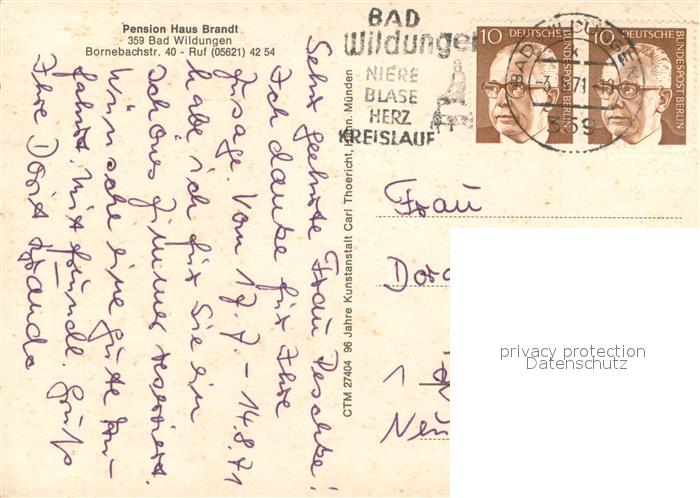 Pension Haus Brandt
359 Bad Wildungen
Bornebachstr. 40 - Ruf (05621) 42 54
Sehr geehrte Frau Peschke!
Ich danke für Ihre
Zusage. Vom 17.7 - 14.8.71
habe ich für Sie ein
schönes Zimmer reserviert.
Wünsche eine gute An-
fahrt. Mit freundl. Gruß
Ihre Dorit Brandt
CTM 27404 96 Jahre Kunstanstalt Carl Thoericht, Hann. Münden
BAD
Wildungen
NIERE
BLASE
HERZ
KREISLAUF
BAD WILDUNGEN
71
359
10 DEUTSCHE BUNDESPOST BERLIN
10 DEUTSCHE BUNDESPOST BERLIN
Frau
Dor
1
Neu
privacy protection
Datenschutz